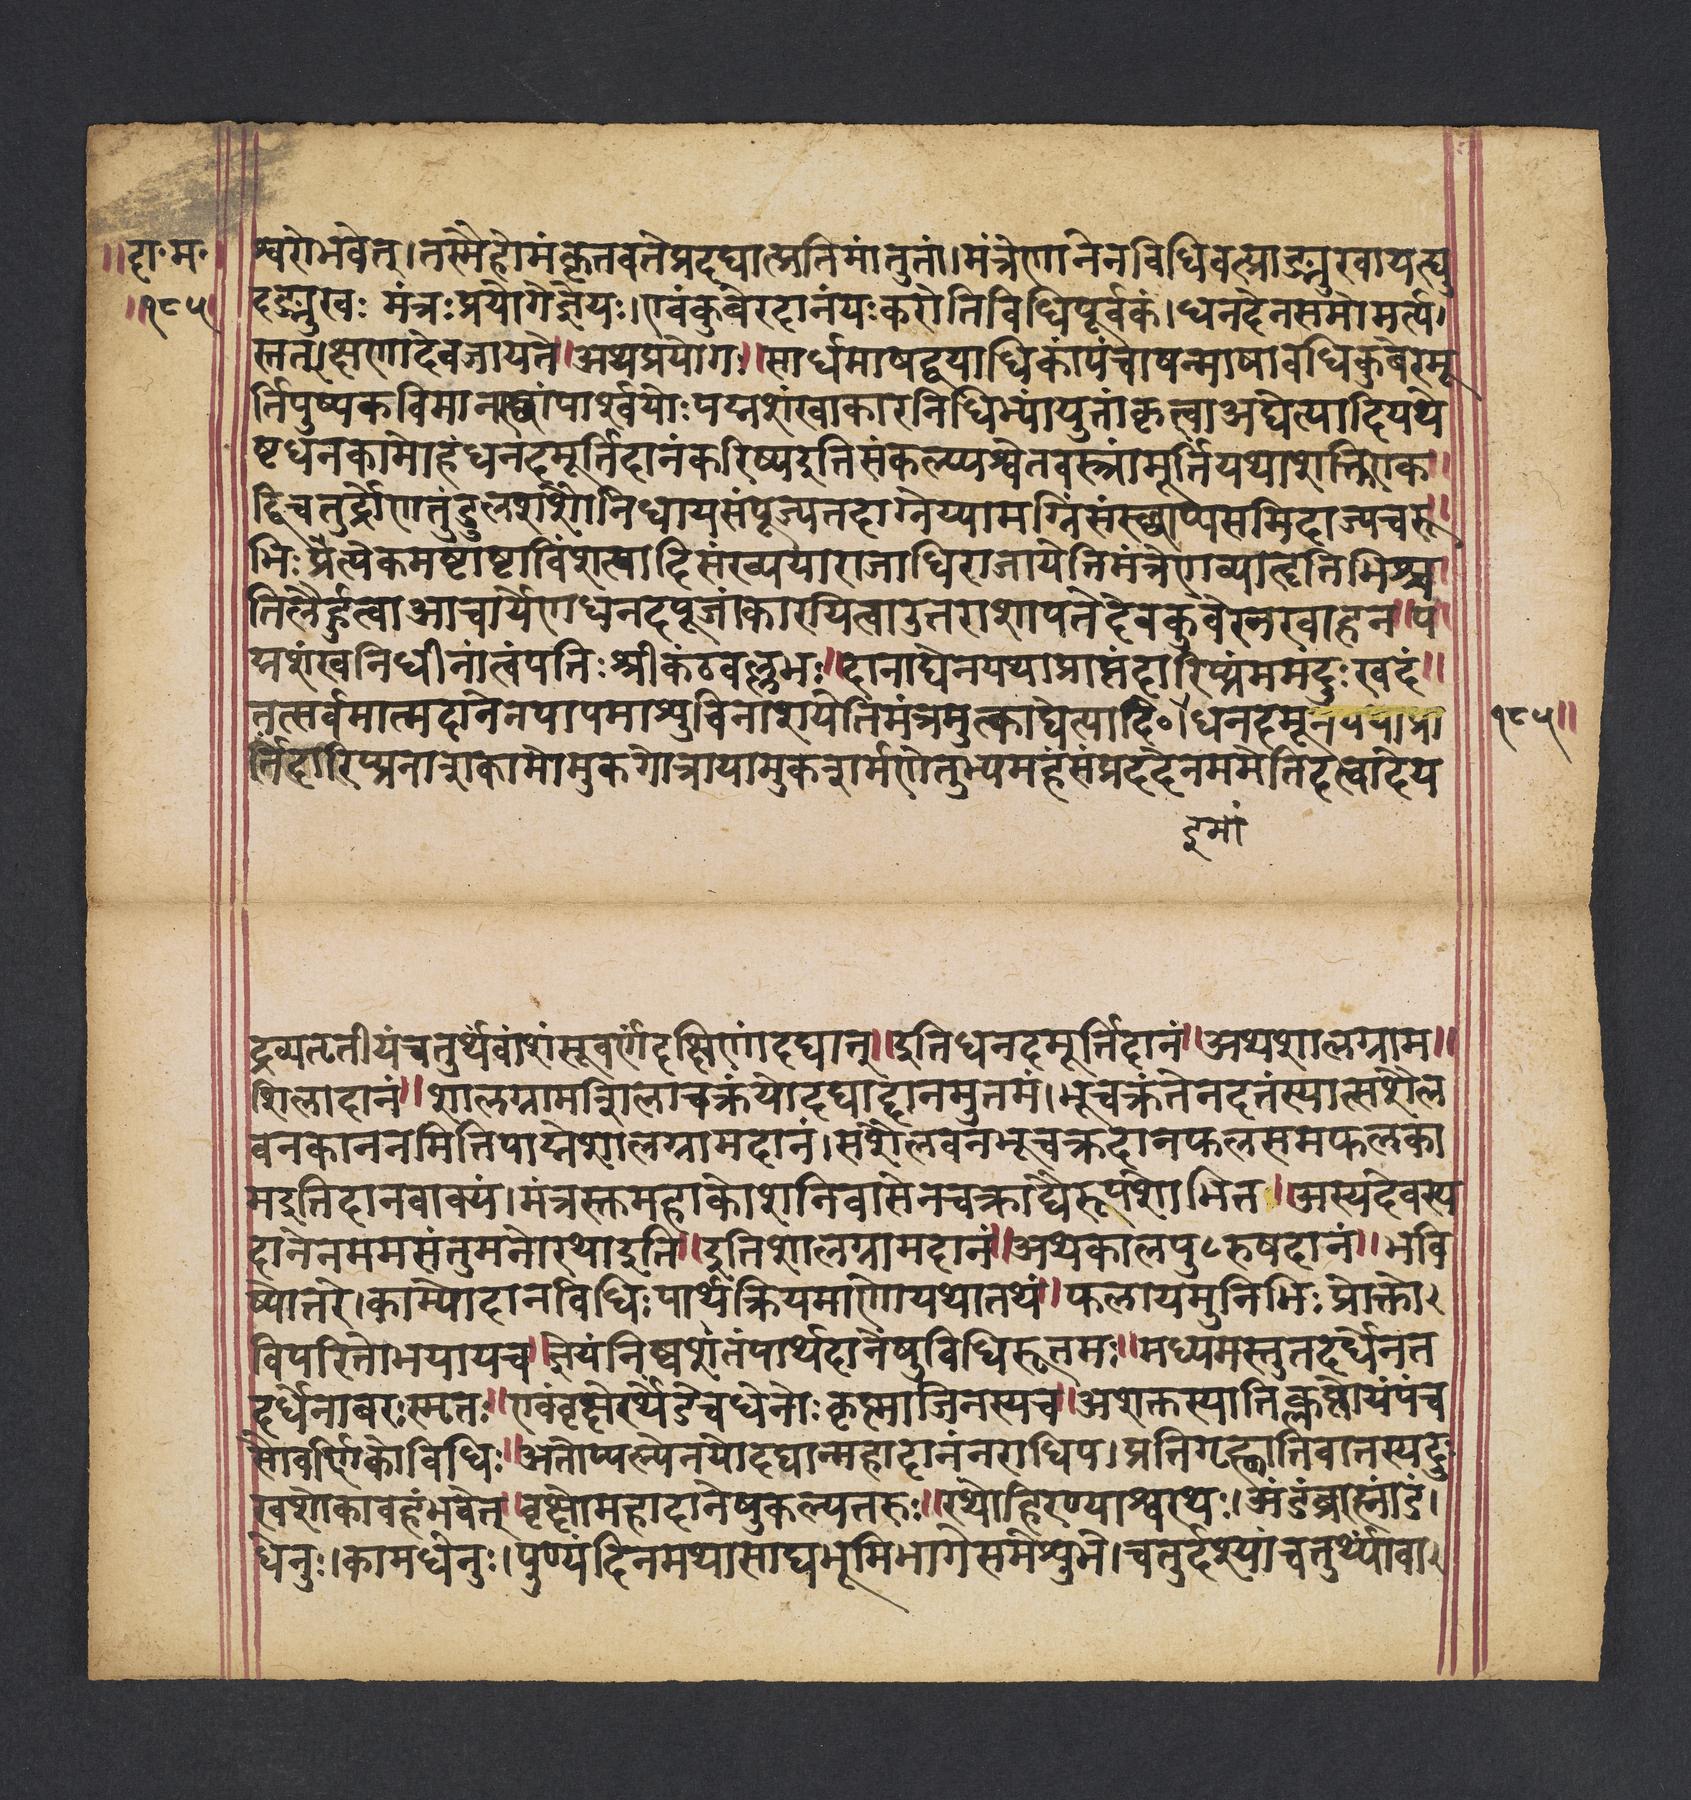 ॥दा॰म॰
॥१८५
श्वरोभवेत्।तस्मैहोमंकृतवतेप्रदद्यात्प्रतिमांतुतां।मंत्रेणानेनविधिवत्प्राङ्मुखायत्यु
दङ्मुखः मंत्रःप्रयोगेज्ञेयः।एवंकुबेरदानंयःकरोतिविधिपूर्वकं।धनदेनसमोमर्त्य
स्तत्।क्षणादेवजायते॥अथप्रयोगः॥सार्धमाषद्वयाधिकांपंचाषन्माषावधिकुबेरमू
र्तिपुष्पकविमानस्थांपार्श्वयोःपद्मशंखाकारनिधिभ्यांयुतांकृत्वाअद्येत्यादियथे
ष्टधनकामोहंधनदमूर्तिदानंकरिष्यइतिसंकल्प्यश्वेतवस्त्रांमूर्तियथाशक्तिएक
द्विचतुर्द्रोणतंडुलराशौनिधायसंपूज्यतदाग्नेय्यामग्निंसंस्थाप्यसमिदाज्यचरु
भिःप्रत्येकमष्टाष्टाविंशत्यादिसंख्ययाराजाधिराजायेतिमंत्रेणव्याहृतिभिश्च
तिलैर्हुत्वाआचार्येणधनदपूजांकारयित्वाउत्तराशापतेदेवकुबेरनरवाहन॥प
द्मशंखनिधीनांत्वंपतिःश्रीकंठवल्लभः॥दानाद्येनयथाप्राप्तंदारिद्र्यंममदुःखदं॥
तत्सर्वमात्मदानेनपापमाशुविनाशयेतिमंत्रमुत्काद्येत्यादि०।धनदमू
१८५॥
र्तिदारिद्र्यनाशकामोमुकगोत्रायामुकशर्मणेतुभ्यमहंसंप्रददेनममेतिदत्वादेय
इमां
द्रव्यतृतीयंचतुर्थंवांशंसूवर्णंदक्षिणांदद्यात्॥इतिधनदमूर्तिदानं॥अथशालग्राम॥
शिलादानं॥शालग्रामशिलाचक्रंयोदद्याद्दानमुतमं।भूचक्रंतेनदतंस्यात्सशैल
वनकाननमितिपाद्मेशालग्रामदानं।सशैलवनभूचक्रदानफलसमफलका
मइतिदानवाक्यं।मंत्रस्तमहाकोशनिवासेनचक्राद्यैरूपशोभित॥अस्यदेवस्य
दानेनममसंतुमनोरथाइति॥इतिशालग्रामदानं॥अथकालपुरुषदानं॥भवि
ष्योत्तरे।काम्योदानविधिःपार्थक्रियमाणोयथातथं॥फलायमुनिभिःप्रोक्तो
विपरितोभयायच॥ज्ञेयंनिष्वशंतंपार्थदानेषुविधिरुत्तमः॥मध्यमस्तुतदर्धेनत
दर्धेनावरःस्मृतः॥एवंवृक्षेरथेंडेचधेनोःकृष्णाजिनस्यच॥अशक्तस्यातिक्लृप्तोयंपंच
सौवर्णिकोविधिः॥अतोप्यल्पेनयोदद्यान्महादानंनराधिप।प्रतिगृह्णातिवातस्यदुः
खशोकावहंभवेत्॥वृक्षोमहादानेषुकल्पतरुः॥रथोहिरण्याश्वरथः।अंडंब्रह्मांडं।
धेनुः।कामधेनुः।पुण्यंदिनमथासाद्यभूमिभागेसमेशुभे।चतुर्दश्यांचतुर्थ्यांवा